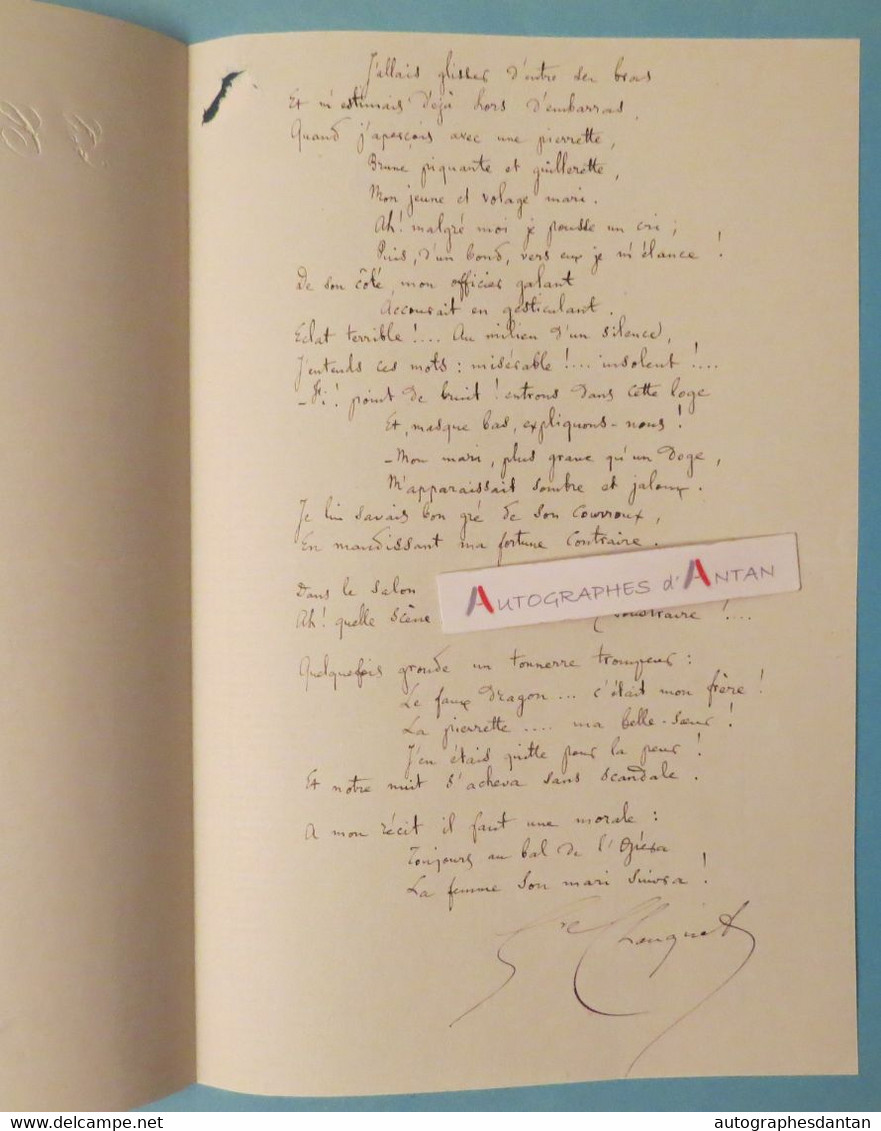 J'allais glisser d'entre ses bras
Et m'estimais déjà hors d'embarras,
Quand j'aperçois avec une pierrette,
Brune piquante et guillerette,
Mon jeune et volage mari.
Ah! malgré moi je pousse un cri;
Puis, d'un bond, vers eux je m'élance!
De son côté, mon officier galant
Accourait en gesticulant.
Eclat terrible!.... Au milieu d'un silence,
J'entends ces mots: misérable!... insolent!...
- Fi! point de bruit! entrons dans cette loge
Et, masque bas, expliquons-nous!
- Mon mari, plus grave qu'un Doge,
M'apparaissait sombre et jaloux.
Je lui savais bon gré de son courroux,
En maudissant ma fortune contraire.
Dans le salon
Ah! quelle scène soustraire!....
AUTOGRAPHES d'ANTAN
Quelquefois gronde un tonnerre trompeur:
Le faux Dragon... c'était mon frère!
La pierrette.... ma belle-sœur!
J'en étais quitte pour la peur!
Et notre nuit s'acheva sans scandale.
A mon récit il faut une morale:
Toujours au bal de l'Opéra
La femme son mari suivra!
Gve Chouquet
delcampe.net
autographesdantan